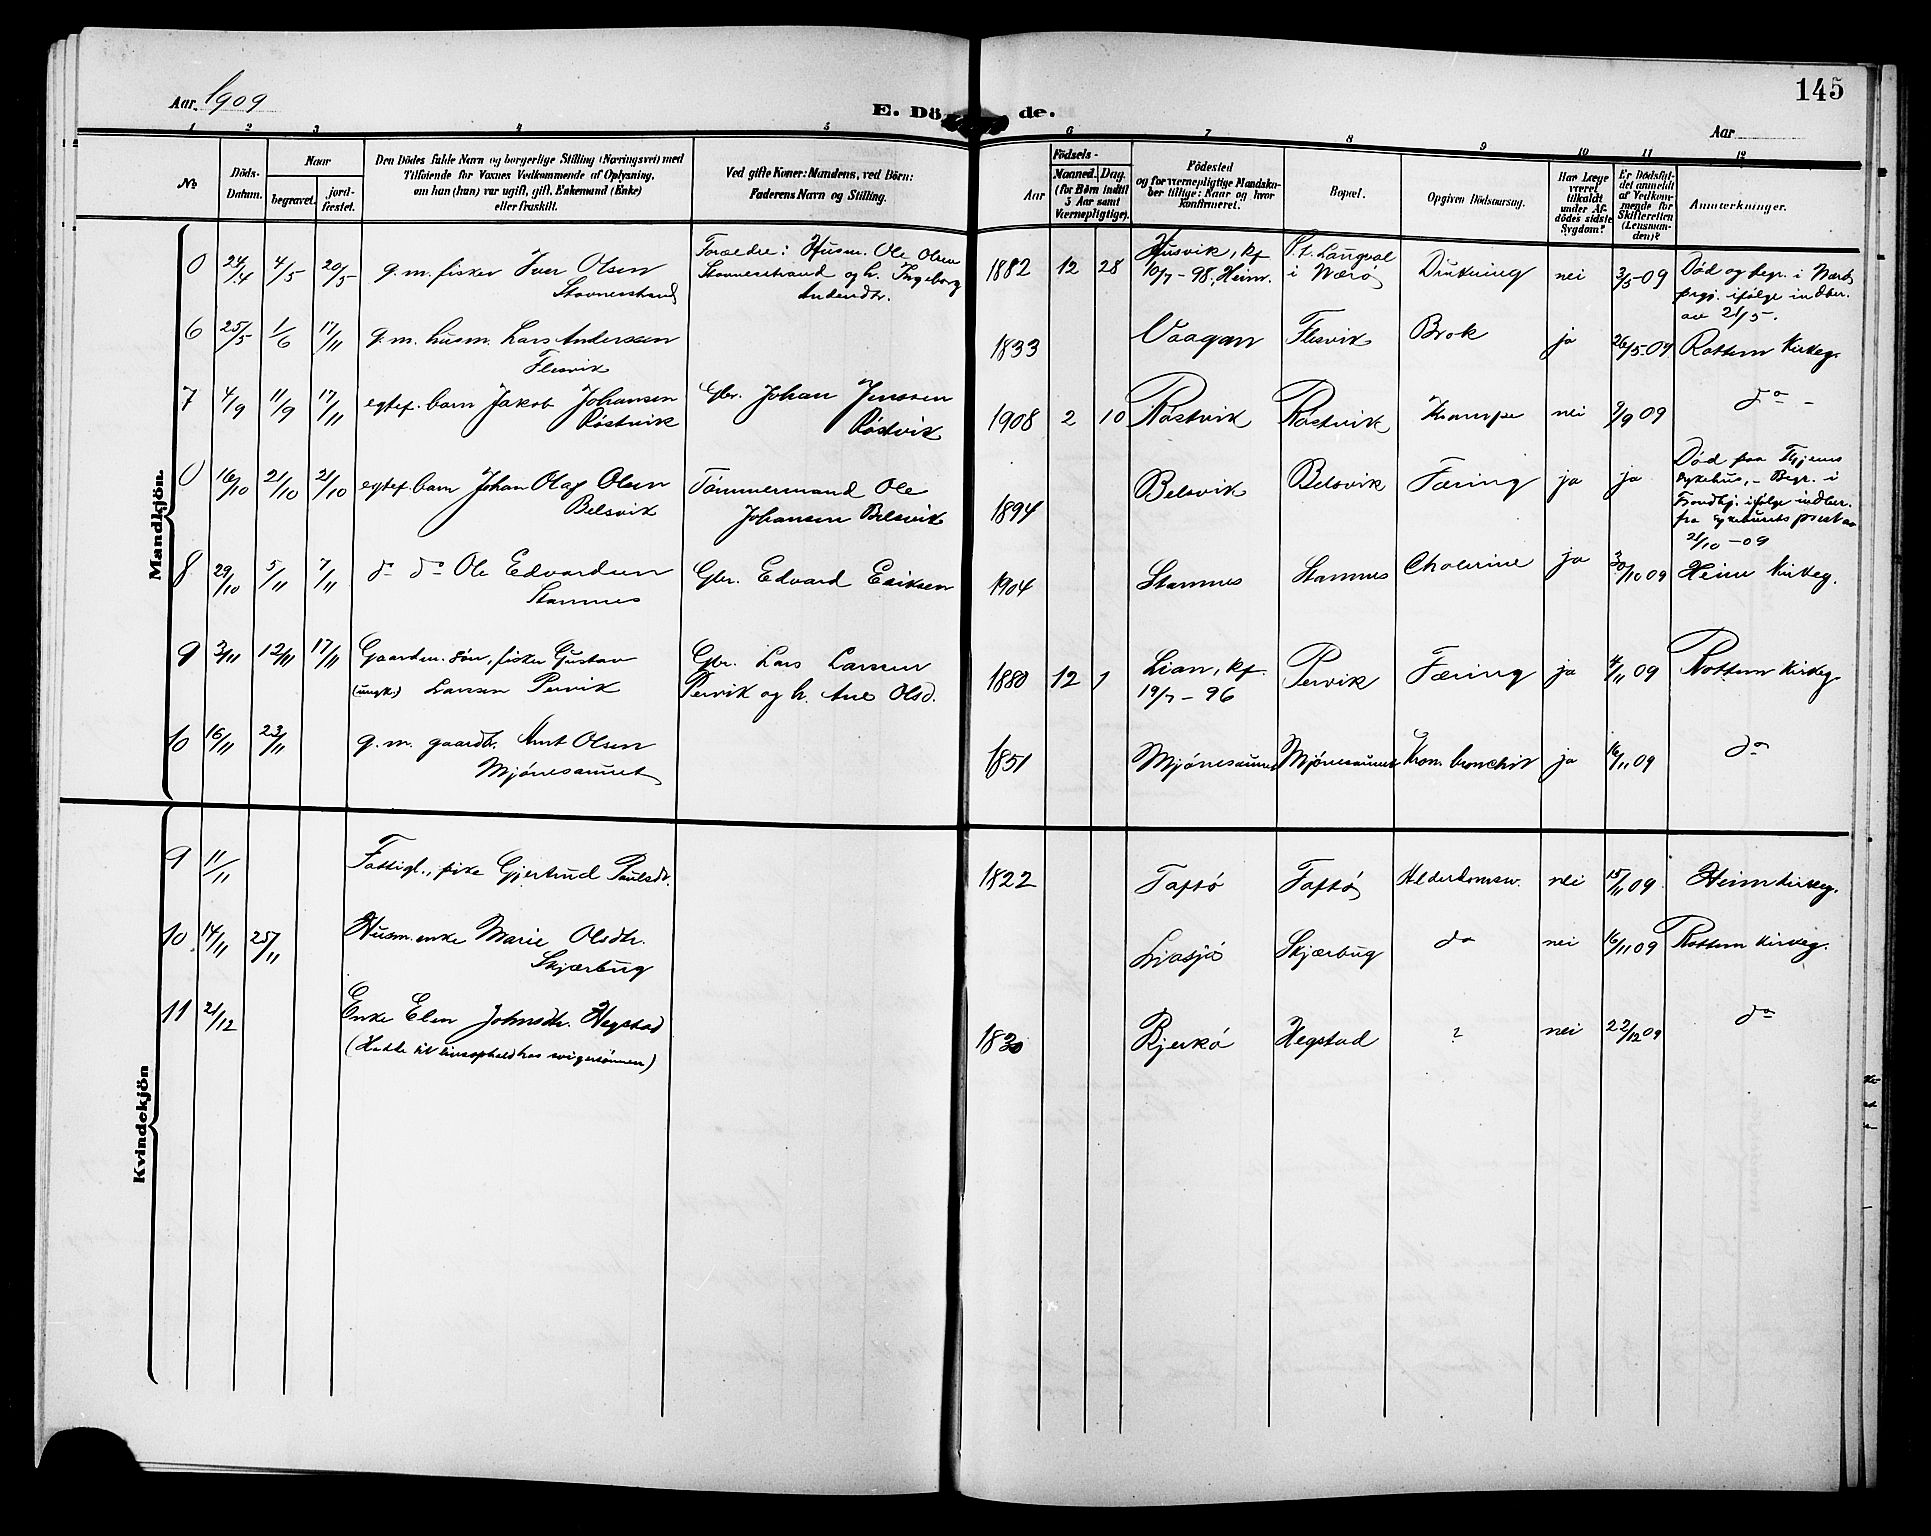 Aar 1909
E. Döde.
145
Aar
1 2 3 4 5 6 7 8 9 10 11 12
No
Döds-Datum.
Naar
begravet.
jord-fæstet.
Den Dödes fulde Navn og borgerlige Stilling (Næringsvei) med
Tilföiende for Voxnes Vedkommende af Oplysning,
om han (hun) var ugift, gift, Enkemand (Enke)
eller fraskilt.
Ved gifte Koner: Mandens, ved Börn:
Faderens Navn og Stilling.
Födsels-
Aar
Maaned. Dag.
(for Børn indtil
5 Aar samt
Værnepligtige).
Födested
og for værnepligtige Mandska-
ber tillige: Naar og hvor
Konfirmeret.
Bopæl.
Opgiven Dödsaarsag.
Har Læge
været
tilkaldt
under Af-
dödes sidste
Sygdom?
Er Dödsfal-
det anmeldt
af Vedkom-
mende for
Skifteretten
(Lensman-
den)?
Anmerkninger.
Mandkjön.
0 24/4 4/5 20/5 g.m. fisker Iver Olsen
Stavnesstrand
Forældre: Husm. Ole Olsen
Stavnesstrand og h. Ingeborg
Andersdtr.
1882 12 28
Husvik, kf.
10/7 - 98, Heim.
P.t. Langval
i Værø
Drukning nei 3/5-09
Død og begr. i Værø
prgj. ifølge indber.
av 21/5.
6 25/5 1/6 17/11 g.m. husm. Lars Anderssen
Flesvik
1833 Vaagan Flesvik Brok ja 26/5-09 Rottem Kirkeg.
7 4/9 11/9 17/11 egtef. barn Jakob Johansen
Røstvik
Gbr. Johan Jenssen
Røstvik
1908 2 10 Røstvik Røstvik Krampe nei 9/9 09 do -
0 16/10 21/10 21/10 egtef. barn Johan Olaf Olsen
Belsvik
Tømmermand Ole
Johansen Belsvik
1894 Belsvik Belsvik Tæring ja ja
Død paa Thjems
sykehus, - Begr. i
Trondhj. ifølge indber.
fra sykehusets prest av
21/10 - 09
8 29/10 5/11 7/11 do do Ole Edvardsen
Stamnes
Gbr. Edvard Eriksen
1904 Stamnes Stamnes Cholerine ja 30/10 09 Heim Kirkeg.
9 3/11 12/11 17/11 Gaardm. søn, fisker Gustav
(ungk.) Larsen Pervik
Gbr. Lars Larsen
Pervik og h. Ane Olsd.
1880 12 1
Lian, kf.
19/7 - 96
Pervik Tæring ja 4/11 09 Rottem Kirkeg.
10 16/11 23/11 g.m. gaardbr. Arnt Olsen
Mjønesaunet
1851 Mjønesaunet Mjønesaunet Kron. bronchit ja 16/11 09 do
Kvindekjön
9 11/11 Fattigl., pike Gjertrud Paulsdr.
1822 Taftø Taftø Alderdomssv. nei 15/11 09 Heim kirkeg.
10 14/11 25/11 Husm.enke Marie Olsdtr.
Skjærbug
Liasjø Skjærbug do nei 16/11 09 Rottem kirkeg.
11 21/12 Enke Elen Johnsdtr. Hegstad
(Hadde sit livsophold hos svigersønnen)
1830 Bjerkø Hegstad ? nei 22/12 09 do